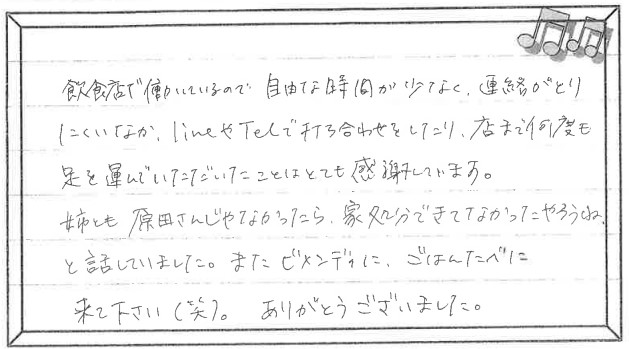 飲食店で働いているので自由な時間が少なく、連絡がとり
にくいなか、lineやTelで打ち合わせをしたり、店まで何度も
足を運んでいただいたことはとても感謝しています。
姉とも原田さんじゃなかったら、家処分できてなかったやろうね、
と話していました。またビメンディに、ごはんたべに
来て下さい(笑)。ありがとうございました。